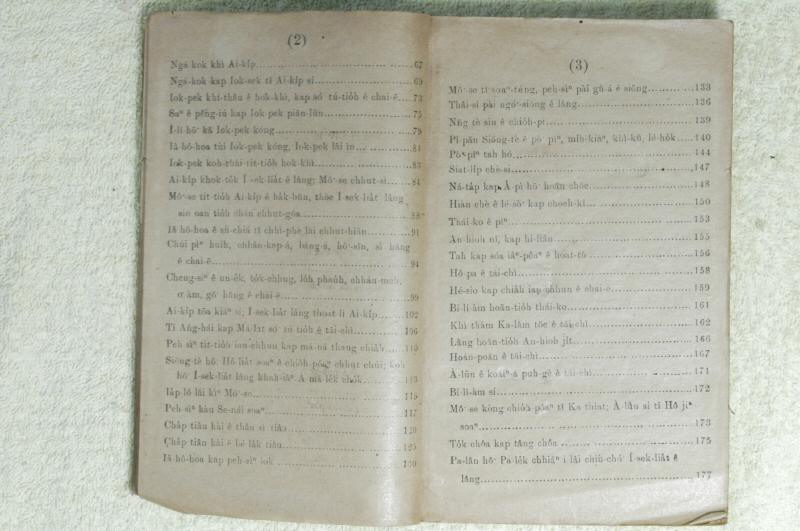 (2)
Ngá-kok khì Ai-ki̍p 67
Ngá-kok kap Iok-sek tī Ai-ki̍p sí 69
Iok-pek khí-thâu ê hok-khì, kap só͘ tú-tio̍h ê chai-ē 73
Saⁿ ê pêng-iú kap Iok-pek piān-lūn 75
Í-lī-hō͘ kā Iok-pek kóng 79
Iâ-hô-hoa tùi Iok-pek kóng, Iok-pek lâi ìn 81
Iok-pek koh-chài tit-tio̍h hok-khì 83
Ai-ki̍p khok-to̍k Í-sek-lia̍t ê lâng; Mô͘-se chhut-sì 84
Mô͘-se tit-tio̍h Ai-ki̍p ê ha̍k-būn, thòe Í-sek-lia̍t lâng
sin-oan tio̍h cháu-chhut-gōa 88
Iâ-hô-hoa ê sù-chiá tī chhì-phè lāi chhut-hiān 91
Chúi pìⁿ huih, chhân-kap-á, báng-á, hô͘-sîn, sì hāng
ê chai-ē 94
Cheng-siⁿ ê un-e̍k, to̍k-chhng, lo̍h-pha̍uh, chháu-meh,
o͘-àm, gō͘ hāng ê chai-ē 99
Ai-ki̍p tōa kiáⁿ sí; Í-sek-lia̍t lâng thoat-lī Ai-ki̍p 102
Tī Âng-hái kap Má-lat só͘ tú-tio̍h ê tāi-chì 106
Peh-sìⁿ tit-tio̍h iau-chhun kap má-ná thang chia̍h 110
Siōng-tè hō͘ Hô-lia̍t soaⁿ ê chio̍h-pôaⁿ chhut chúi; koh
hō͘ Í-sek-lia̍t lâng khah-iâⁿ A-má-le̍k cho̍k 113
Ia̍p-lô lâi kìⁿ Mô͘-se 115
Peh-sìⁿ kàu Se-nái soaⁿ 117
Cha̍p tiâu kài ê thâu sì tiâu 120
Cha̍p tiâu kài ê bé la̍k tiâu 125
Iâ-hô-hoa kap peh-sìⁿ iok 130
(3)
Mô͘-se tī soaⁿ-téng, peh-sìⁿ pài gû-á ê siōng 133
Thâi-sí pài ngó͘-siōng ê lâng 136
Nn̄g tè sin ê chio̍h-pi 139
Pī-pān Siōng-tè ê pò͘-pîⁿ, mi̍h-kiāⁿ, khì-kū, lé-ho̍k 140
Pò͘-pîⁿ tah-hó 144
Siat-li̍p chè-si 147
Ná-ta̍p kap A-pì-hō͘ hoān-chōe 148
Hiàn-chè ê lé-sò͘ kap choeh-kî 150
Thái-ko ê pīⁿ 153
An-hioh nî, kap hí-liân 155
Tah kap sóa iâⁿ-pôaⁿ ê hoat-tō͘ 156
Hó-pa ê tāi-chì 158
Hé-sio kap chia̍h iau-chhun ê chai-ē 159
Bí-lī-àm hoān-tio̍h thái-ko 161
Khì thàm Ka-lâm tōe ê tāi-chì 162
Lâng hoān-tio̍h An-hioh ji̍t 166
Hoán-poān ê tāi-chì 167
A-lûn ê koáiⁿ-á puh-gê ê tāi-chì 171
Bí-lī-àm sí 172
Mô͘-se kèng chio̍h-pôaⁿ tī Ka-thiat; A-lûn sí tī Hô-jíⁿ
soaⁿ 173
To̍k chôa kap tâng chôa 175
Pa-lân hō͘ Pa-le̍k chhiáⁿ i lâi chiù-chó͘ Í-sek-lia̍t ê
lâng 177